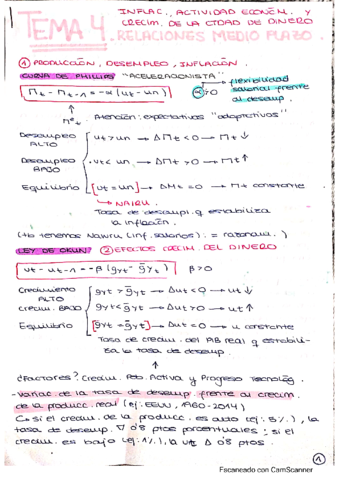 TEMA 4. INFLAC., ACTIVIDAD ECONÓM. Y
CRECIM. DE LA CTDAD DE DINERO
RELACIONES MEDIO PLAZO
① PRODUCCIÓN, DESEMPLEO, INFLACIÓN.
CURVA DE PHILLIPS "ACELERACIONISTA"
Πt - Πt-1 = -α (ut - un) α>0
flexibilidad
salarial frente
al desemp.
Πᵉt Atención: expectativas "adaptativas"
Desempleo ALTO { ut > un → ΔΠt < 0 → Πt ↓
Desempleo BAJO { ut < un → ΔΠt > 0 → Πt ↑
Equilibrio { [ut = un] → ΔΠt = 0 → Πt constante
→ NAIRU.
Tasa de desempl. q estabiliza
la inflación.
LEY DE OKUN ② EFECTOS CRECIM. DEL DINERO
ut - ut-1 = -β (gyt - ḡyt) β>0
Crecimiento ALTO { gyt > ḡyt → Δut < 0 → ut ↓
Crecim. BAJO { gyt < ḡyt → Δut > 0 → ut ↑
Equilibrio { [gyt = ḡyt] → Δut = 0 → u constante
Tasa de crecim. del PIB real q estabili-
za la tasa de desemp.
¿Factores? Crecim. Pob Activa y Progreso Tecnológ.
- Variac. de la tasa de desempl. frente al crecim.
de la producc. real (ej: EEUU, 1960-2014)
si el crecim. de la producc. es alto (ej: 5%), la
tasa de desemp. ∇ 0'8 ptos porcentuales; si el
crecim. es bajo (ej: 1%), la ut Δ 0'8 ptos.
①
Escaneado con CamScanner